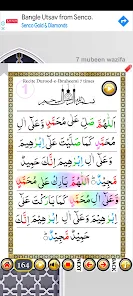 Bangle Utsav from Senco.
Senco Gold & Diamonds
7 mubeen wazifa
Recite Durood e Ibraheemi 7 times
1
بِسْمِ اللهِ الرَّحْمٰنِ الرَّحِيْمِ
اَللّٰهُمَّ صَلِّ عَلٰى مُحَمَّدٍ وَّعَلٰٓى اٰلِ
مُحَمَّدٍ كَمَا صَلَّيْتَ عَلٰٓى اِبْرٰهِيْمَ
وَعَلٰٓى اٰلِ اِبْرٰهِيْمَ اِنَّكَ حَمِيْدٌ
مَّجِيْدٌ اَللّٰهُمَّ بَارِكْ عَلٰى مُحَمَّدٍ
وَّعَلٰٓى اٰلِ مُحَمَّدٍ كَمَا بَارَكْتَ عَلٰٓى
اِبْرٰهِيْمَ وَعَلٰٓى اٰلِ اِبْرٰهِيْمَ اِنَّكَ
حَمِيْدٌ مَّجِيْدٌ
164